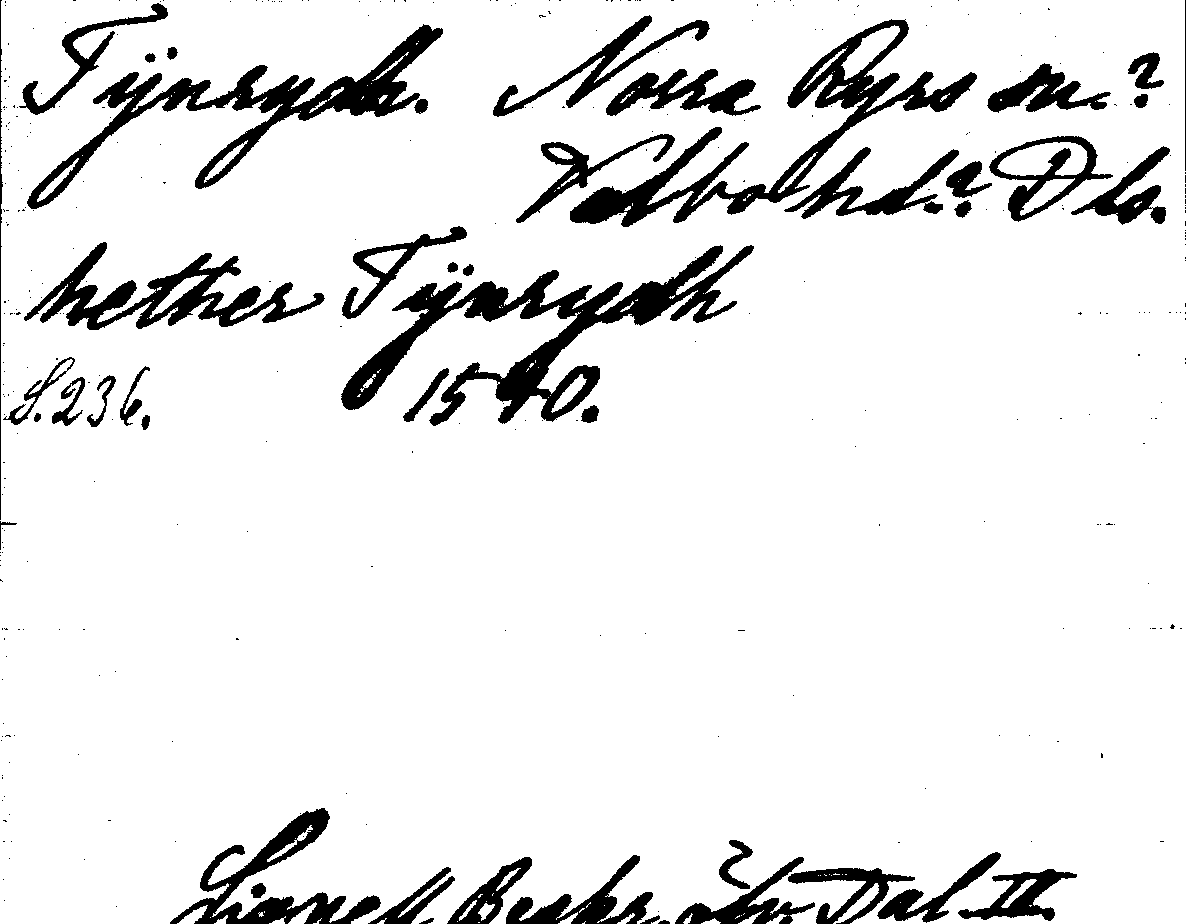 Tÿnrydh. Norra Ryrs sn.?
Valbo hd.? Dls.
hether Tÿnrydh
S. 236. 1540.
Lignell Beskr. öfv. Dal. II